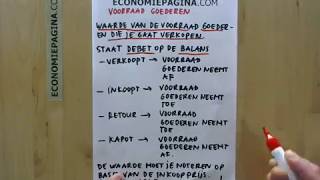 ECONOMIEPAGINA.COM
VOORRAAD GOEDEREN
WAARDE VAN DE VOORRAAD GOEDER-
EN DIE JE GAAT VERKOPEN.
STAAT DEBET OP DE BALANS
- VERKOOPT → VOORRAAD
GOEDEREN NEEMT
AF
- INKOOPT → VOORRAAD
GOEDEREN NEEMT
TOE
- RETOUR → VOORRAAD
GOEDEREN NEEMT
TOE
- KAPOT → VOORRAAD
GOEDEREN NEEMT
AF.
DE WAARDE MOET JE NOTEREN OP
BASIS VAN DE INKOOPPRIJS.